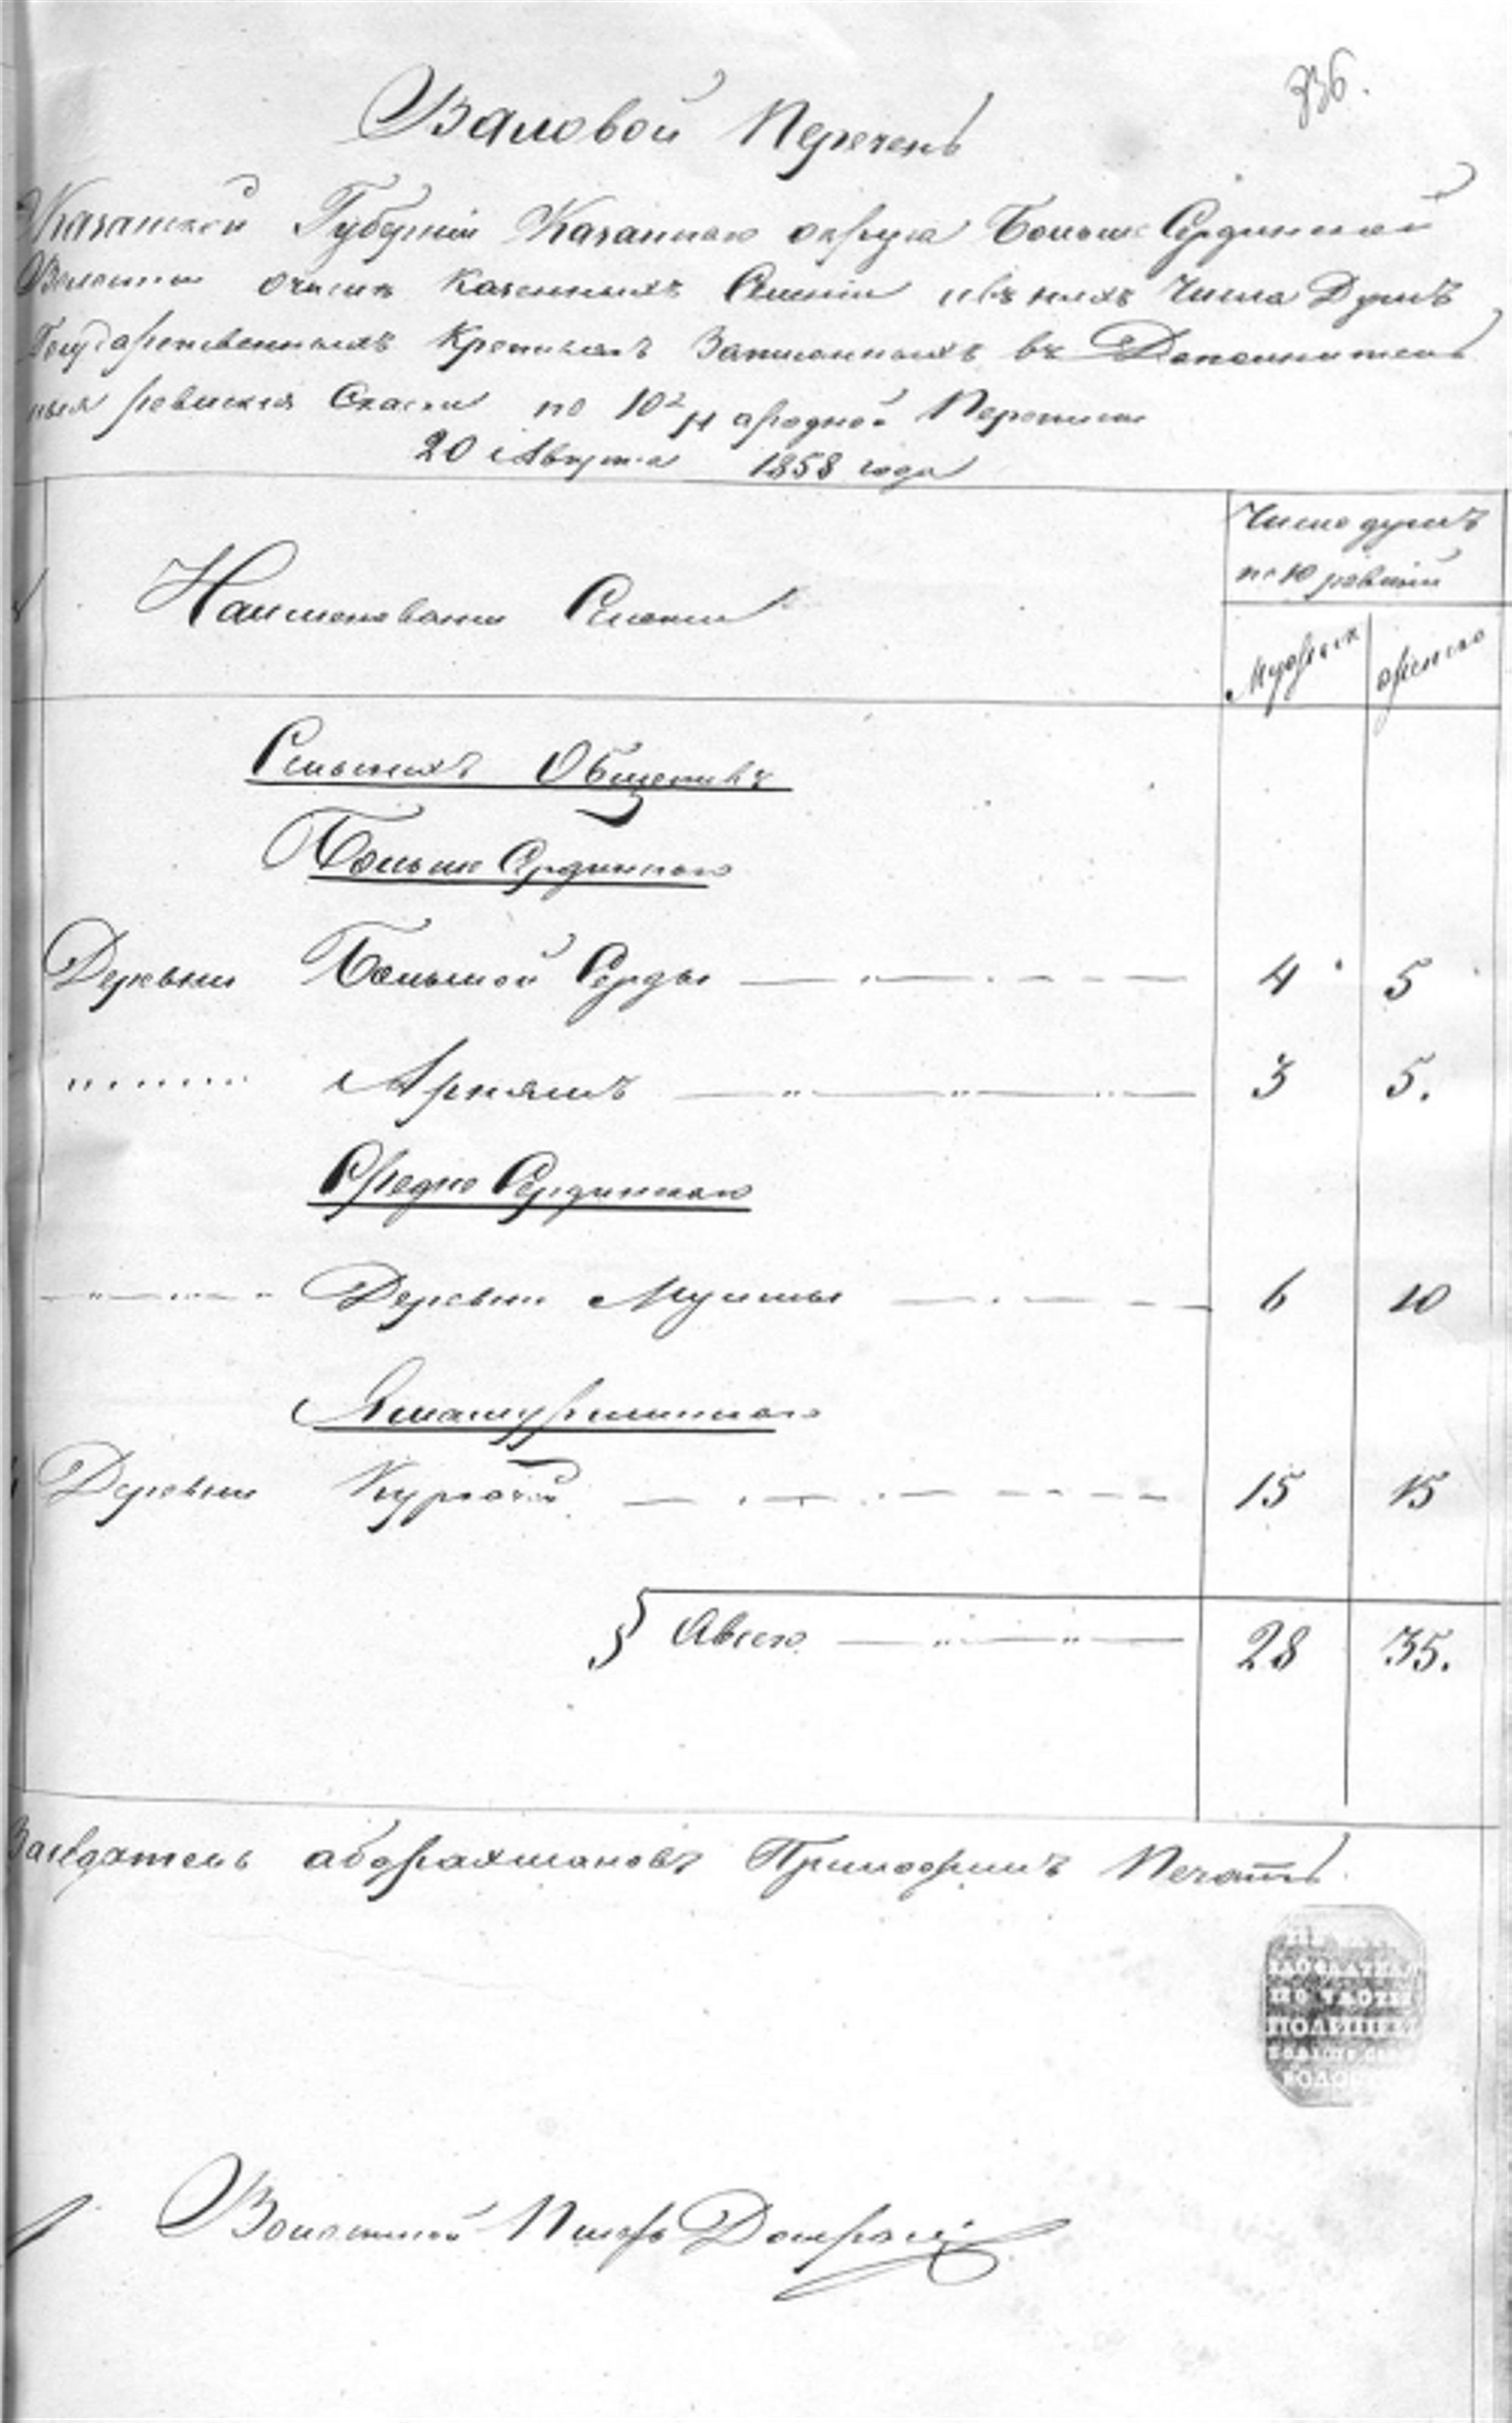 336.
Валовой Перечень
Казанской Губернии Казанскаго округа Больше Сердинской
Волости о числе казенныхъ Селений и въ нихъ Числа Душъ
Государственныхъ Крестьянъ Записанныхъ въ Дополнитель
ныя ревизския Сказки по 10й Народной Переписи
20 Августа 1858 года
Наименование Селений
Число душъ
по 10 ревизии
Мужеска
женска
Сельскихъ Обществъ
Больше Сердинскаго
Деревни Большой Серды 4 5
Арняшъ 3 5.
Средне Сердинскаго
Деревни Муллы 6 10
Ямашурминскаго
Деревни 15 15
Всего 28 35.
Заседатель абдрахмановъ Приложилъ Печать
ПО ЧАСТИ
ПОЛИЦЕЙ
Волостной Писарь